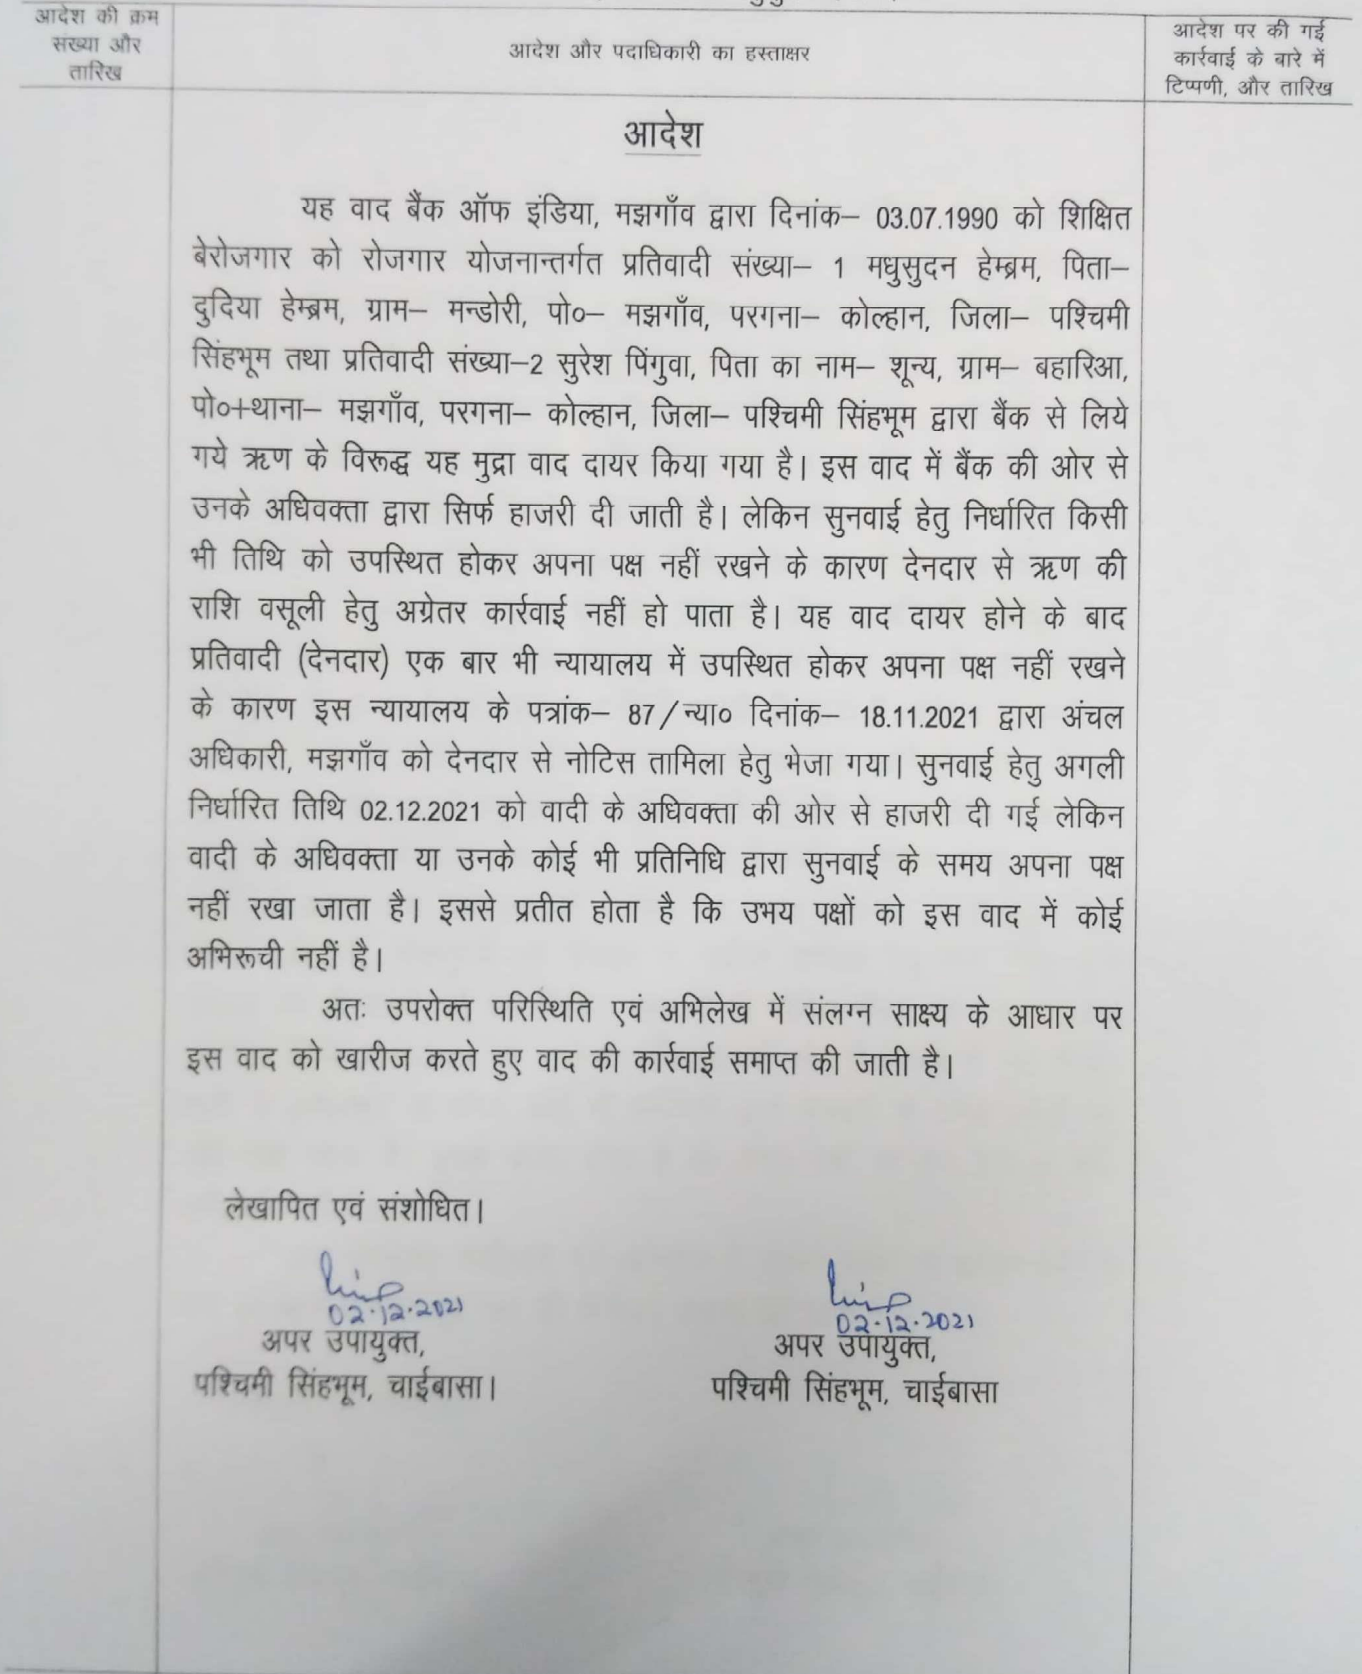 आदेश की क्रम
संख्या और
तारिख
आदेश और पदाधिकारी का हस्ताक्षर
आदेश पर की गई
कार्रवाई के बारे में
टिप्पणी, और तारिख
आदेश
यह वाद बैंक ऑफ इंडिया, मझगाँव द्वारा दिनांक– 03.07.1990 को शिक्षित
बेरोजगार को रोजगार योजनान्तर्गत प्रतिवादी संख्या– 1 मधुसुदन हेम्ब्रम, पिता–
दुदिया हेम्ब्रम, ग्राम– मन्डोरी, पो०– मझगाँव, परगना– कोल्हान, जिला– पश्चिमी
सिंहभूम तथा प्रतिवादी संख्या–2 सुरेश पिंगुवा, पिता का नाम– शून्य, ग्राम– बहारिआ,
पो०+थाना– मझगाँव, परगना– कोल्हान, जिला– पश्चिमी सिंहभूम द्वारा बैंक से लिये
गये ऋण के विरूद्ध यह मुद्रा वाद दायर किया गया है। इस वाद में बैंक की ओर से
उनके अधिवक्ता द्वारा सिर्फ हाजरी दी जाती है। लेकिन सुनवाई हेतु निर्धारित किसी
भी तिथि को उपस्थित होकर अपना पक्ष नहीं रखने के कारण देनदार से ऋण की
राशि वसूली हेतु अग्रेतर कार्रवाई नहीं हो पाता है। यह वाद दायर होने के बाद
प्रतिवादी (देनदार) एक बार भी न्यायालय में उपस्थित होकर अपना पक्ष नहीं रखने
के कारण इस न्यायालय के पत्रांक– 87/न्या० दिनांक– 18.11.2021 द्वारा अंचल
अधिकारी, मझगाँव को देनदार से नोटिस तामिला हेतु भेजा गया। सुनवाई हेतु अगली
निर्धारित तिथि 02.12.2021 को वादी के अधिवक्ता की ओर से हाजरी दी गई लेकिन
वादी के अधिवक्ता या उनके कोई भी प्रतिनिधि द्वारा सुनवाई के समय अपना पक्ष
नहीं रखा जाता है। इससे प्रतीत होता है कि उभय पक्षों को इस वाद में कोई
अभिरूची नहीं है।
अतः उपरोक्त परिस्थिति एवं अभिलेख में संलग्न साक्ष्य के आधार पर
इस वाद को खारीज करते हुए वाद की कार्रवाई समाप्त की जाती है।
लेखापित एवं संशोधित।
02.12.2021
अपर उपायुक्त,
पश्चिमी सिंहभूम, चाईबासा।
02.12.2021
अपर उपायुक्त,
पश्चिमी सिंहभूम, चाईबासा